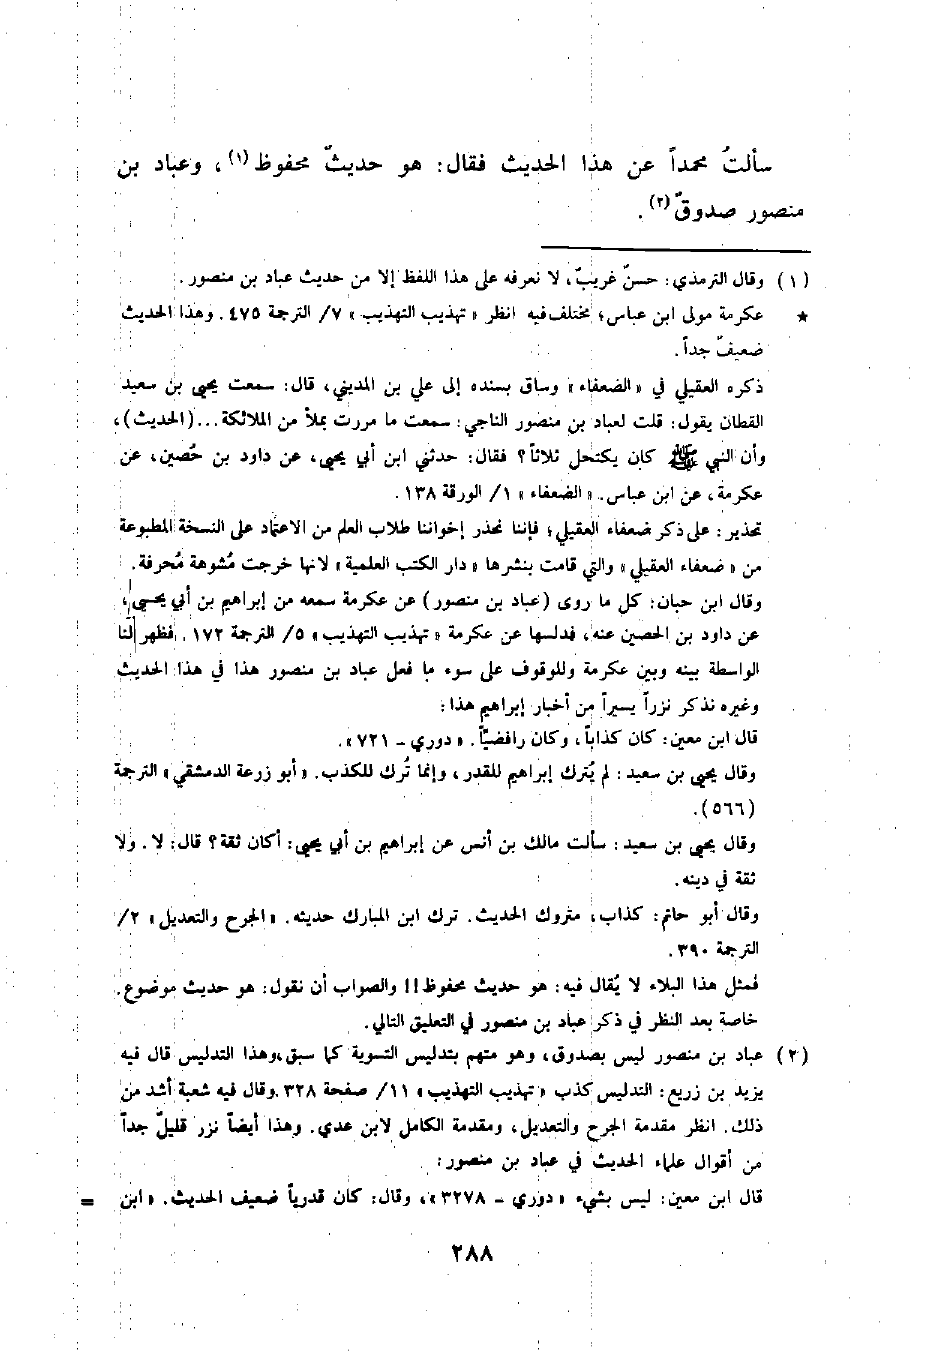 سألتُ محمداً عن هذا الحديث فقال: هو حديثٌ محفوظ (١)، وعباد بن
منصور صدوقٌ (٢).
(١) وقال الترمذي: حسنٌ غريبٌ، لا نعرفه على هذا اللفظ إلا من حديث عباد بن منصور.
★ عكرمة مولى ابن عباس؛ مختلف فيه انظر «تهذيب التهذيب» ٧/ الترجمة ٤٧٥. وهذا الحديث
ضعيفٌ جداً.
ذكره العقيلي في «الضعفاء» وساق بسنده إلى علي بن المديني، قال: سمعت يحيى بن سعيد
القطان يقول: قلت لعباد بن منصور الناجي: سمعت ما مررت بملأ من الملائكة...(الحديث)،
وأن النبي ﷺ كان يكتحل ثلاثاً؟ فقال: حدثني ابن أبي يحيى، عن داود بن حُصين، عن
عكرمة، عن ابن عباس. «الضعفاء» ١/ الورقة ١٣٨.
تحذير: على ذكر ضعفاء العقيلي؛ فإننا نحذر إخواننا طلاب العلم من الاعتماد على النسخة المطبوعة
من «ضعفاء العقيلي» والتي قامت بنشرها «دار الكتب العلمية» لانها خرجت مُشوهة مُحرفة.
وقال ابن حبان: كل ما روى (عباد بن منصور) عن عكرمة سمعه من إبراهيم بن أبي يحيى،
عن داود بن الحصين عنه، فدلسها عن عكرمة «تهذيب التهذيب» ٥/ الترجمة ١٧٢. فظهر لنا
الواسطة بينه وبين عكرمة وللوقوف على سوء ما فعل عباد بن منصور هذا في هذا الحديث
وغيره نذكر نزراً يسيراً من أخبار إبراهيم هذا:
قال ابن معين: كان كذاباً، وكان رافضيّاً. «دوري - ٧٢١».
وقال يحيى بن سعيد: لم يُترك إبراهيم للقدر، وإنما تُرك للكذب. «أبو زرعة الدمشقي» الترجمة
(٥٦٦).
وقال يحيى بن سعيد: سألت مالك بن أنس عن إبراهيم بن أبي يحيى: أكان ثقة؟ قال: لا. ولا
ثقة في دينه.
وقال أبو حاتم: كذاب، متروك الحديث. ترك ابن المبارك حديثه. «الجرح والتعديل» ٢/
الترجمة ٣٩٠.
فمثل هذا البلاء لا يُقال فيه: هو حديث محفوظ!! والصواب أن نقول: هو حديث موضوع.
خاصة بعد النظر في ذكر عباد بن منصور في التعليق التالي.
(٢) عباد بن منصور ليس بصدوق، وهو متهم بتدليس التسوية كما سبق، وهذا التدليس قال فيه
يزيد بن زريع: التدليس كذب «تهذيب التهذيب» ١١/ صفحة ٣٢٨. وقال فيه شعبة أشد من
ذلك. انظر مقدمة الجرح والتعديل، ومقدمة الكامل لابن عدي. وهذا أيضاً نزر قليلٌ جداً
من أقوال علماء الحديث في عباد بن منصور:
قال ابن معين: ليس بشيء «دوري - ٣٢٧٨»، وقال: كان قدرياً ضعيف الحديث. «ابن =
٢٨٨